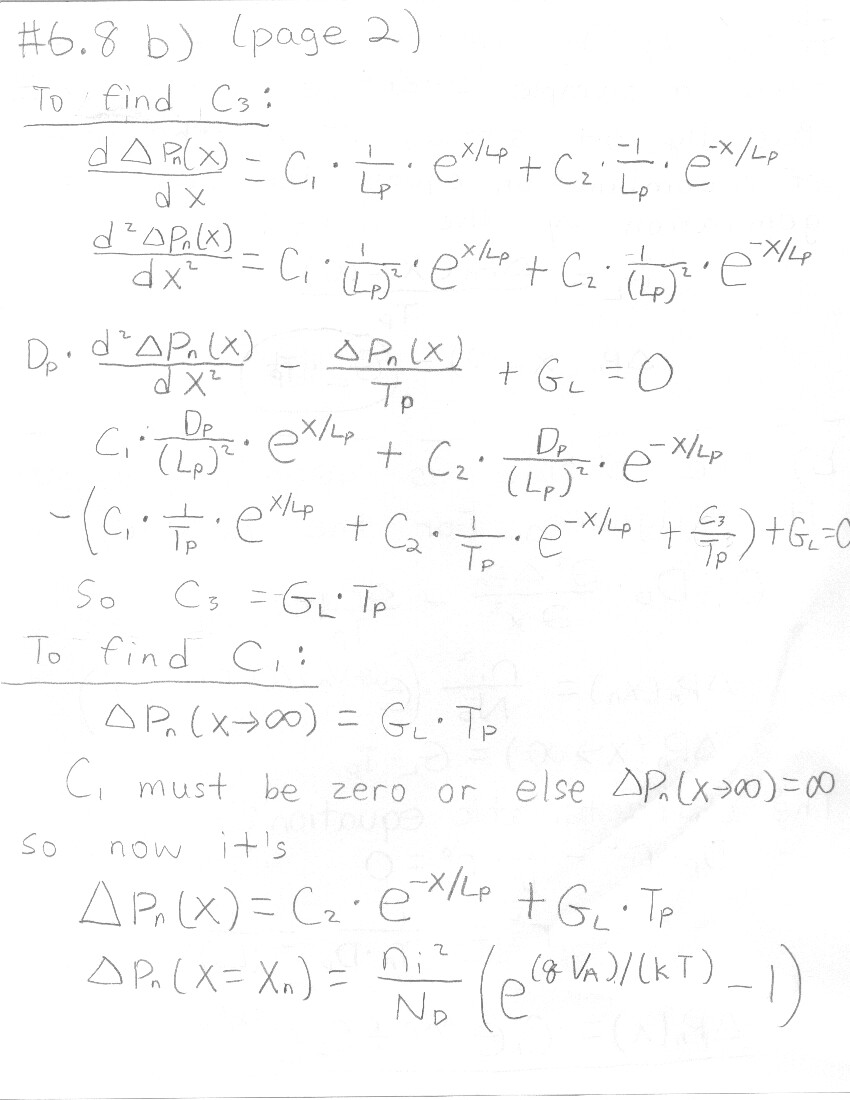 #6.8 b) (page 2)
To find C₃:
dΔPₙ(x)/dx = C₁ · 1/Lp · e^(x/Lp) + C₂ · -1/Lp · e^(-x/Lp)
d²ΔPₙ(x)/dx² = C₁ · 1/(Lp)² · e^(x/Lp) + C₂ · -1/(Lp)² · e^(-x/Lp)
Dp · d²ΔPₙ(x)/dx² - ΔPₙ(x)/Tp + G_L = 0
C₁ · Dp/(Lp)² · e^(x/Lp) + C₂ · Dp/(Lp)² · e^(-x/Lp)
-(C₁ · 1/Tp · e^(x/Lp) + C₂ · 1/Tp · e^(-x/Lp) + C₃/Tp) + G_L = 0
So C₃ = G_L · Tp
To find C₁:
ΔPₙ(x→∞) = G_L · Tp
C₁ must be zero or else ΔPₙ(x→∞) = ∞
so now it's
ΔPₙ(x) = C₂ · e^(-x/Lp) + G_L · Tp
ΔPₙ(x = Xₙ) = nᵢ²/N_D (e^((qV_A)/(kT)) - 1)